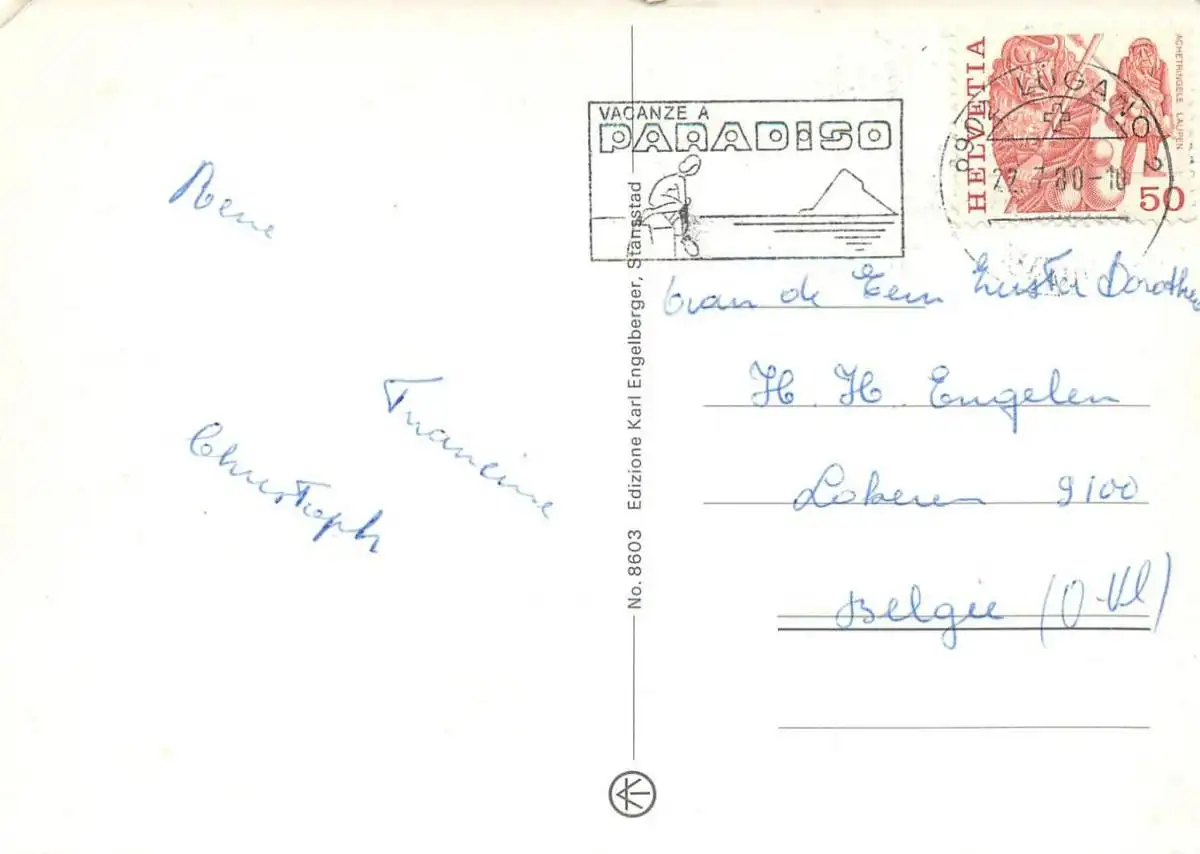 VACANZE A
PARADISO
HELVETIA
ACHETRINGELE LAUPEN
50
LUGANO 2
7.80-18
Rene
Francine
Christoph
No. 8603 Edizione Karl Engelberger, Stansstad
de Eerw Zuster Dorothea
H. H. Engelen
Lokeren 9100
Belgie (O-Vl)